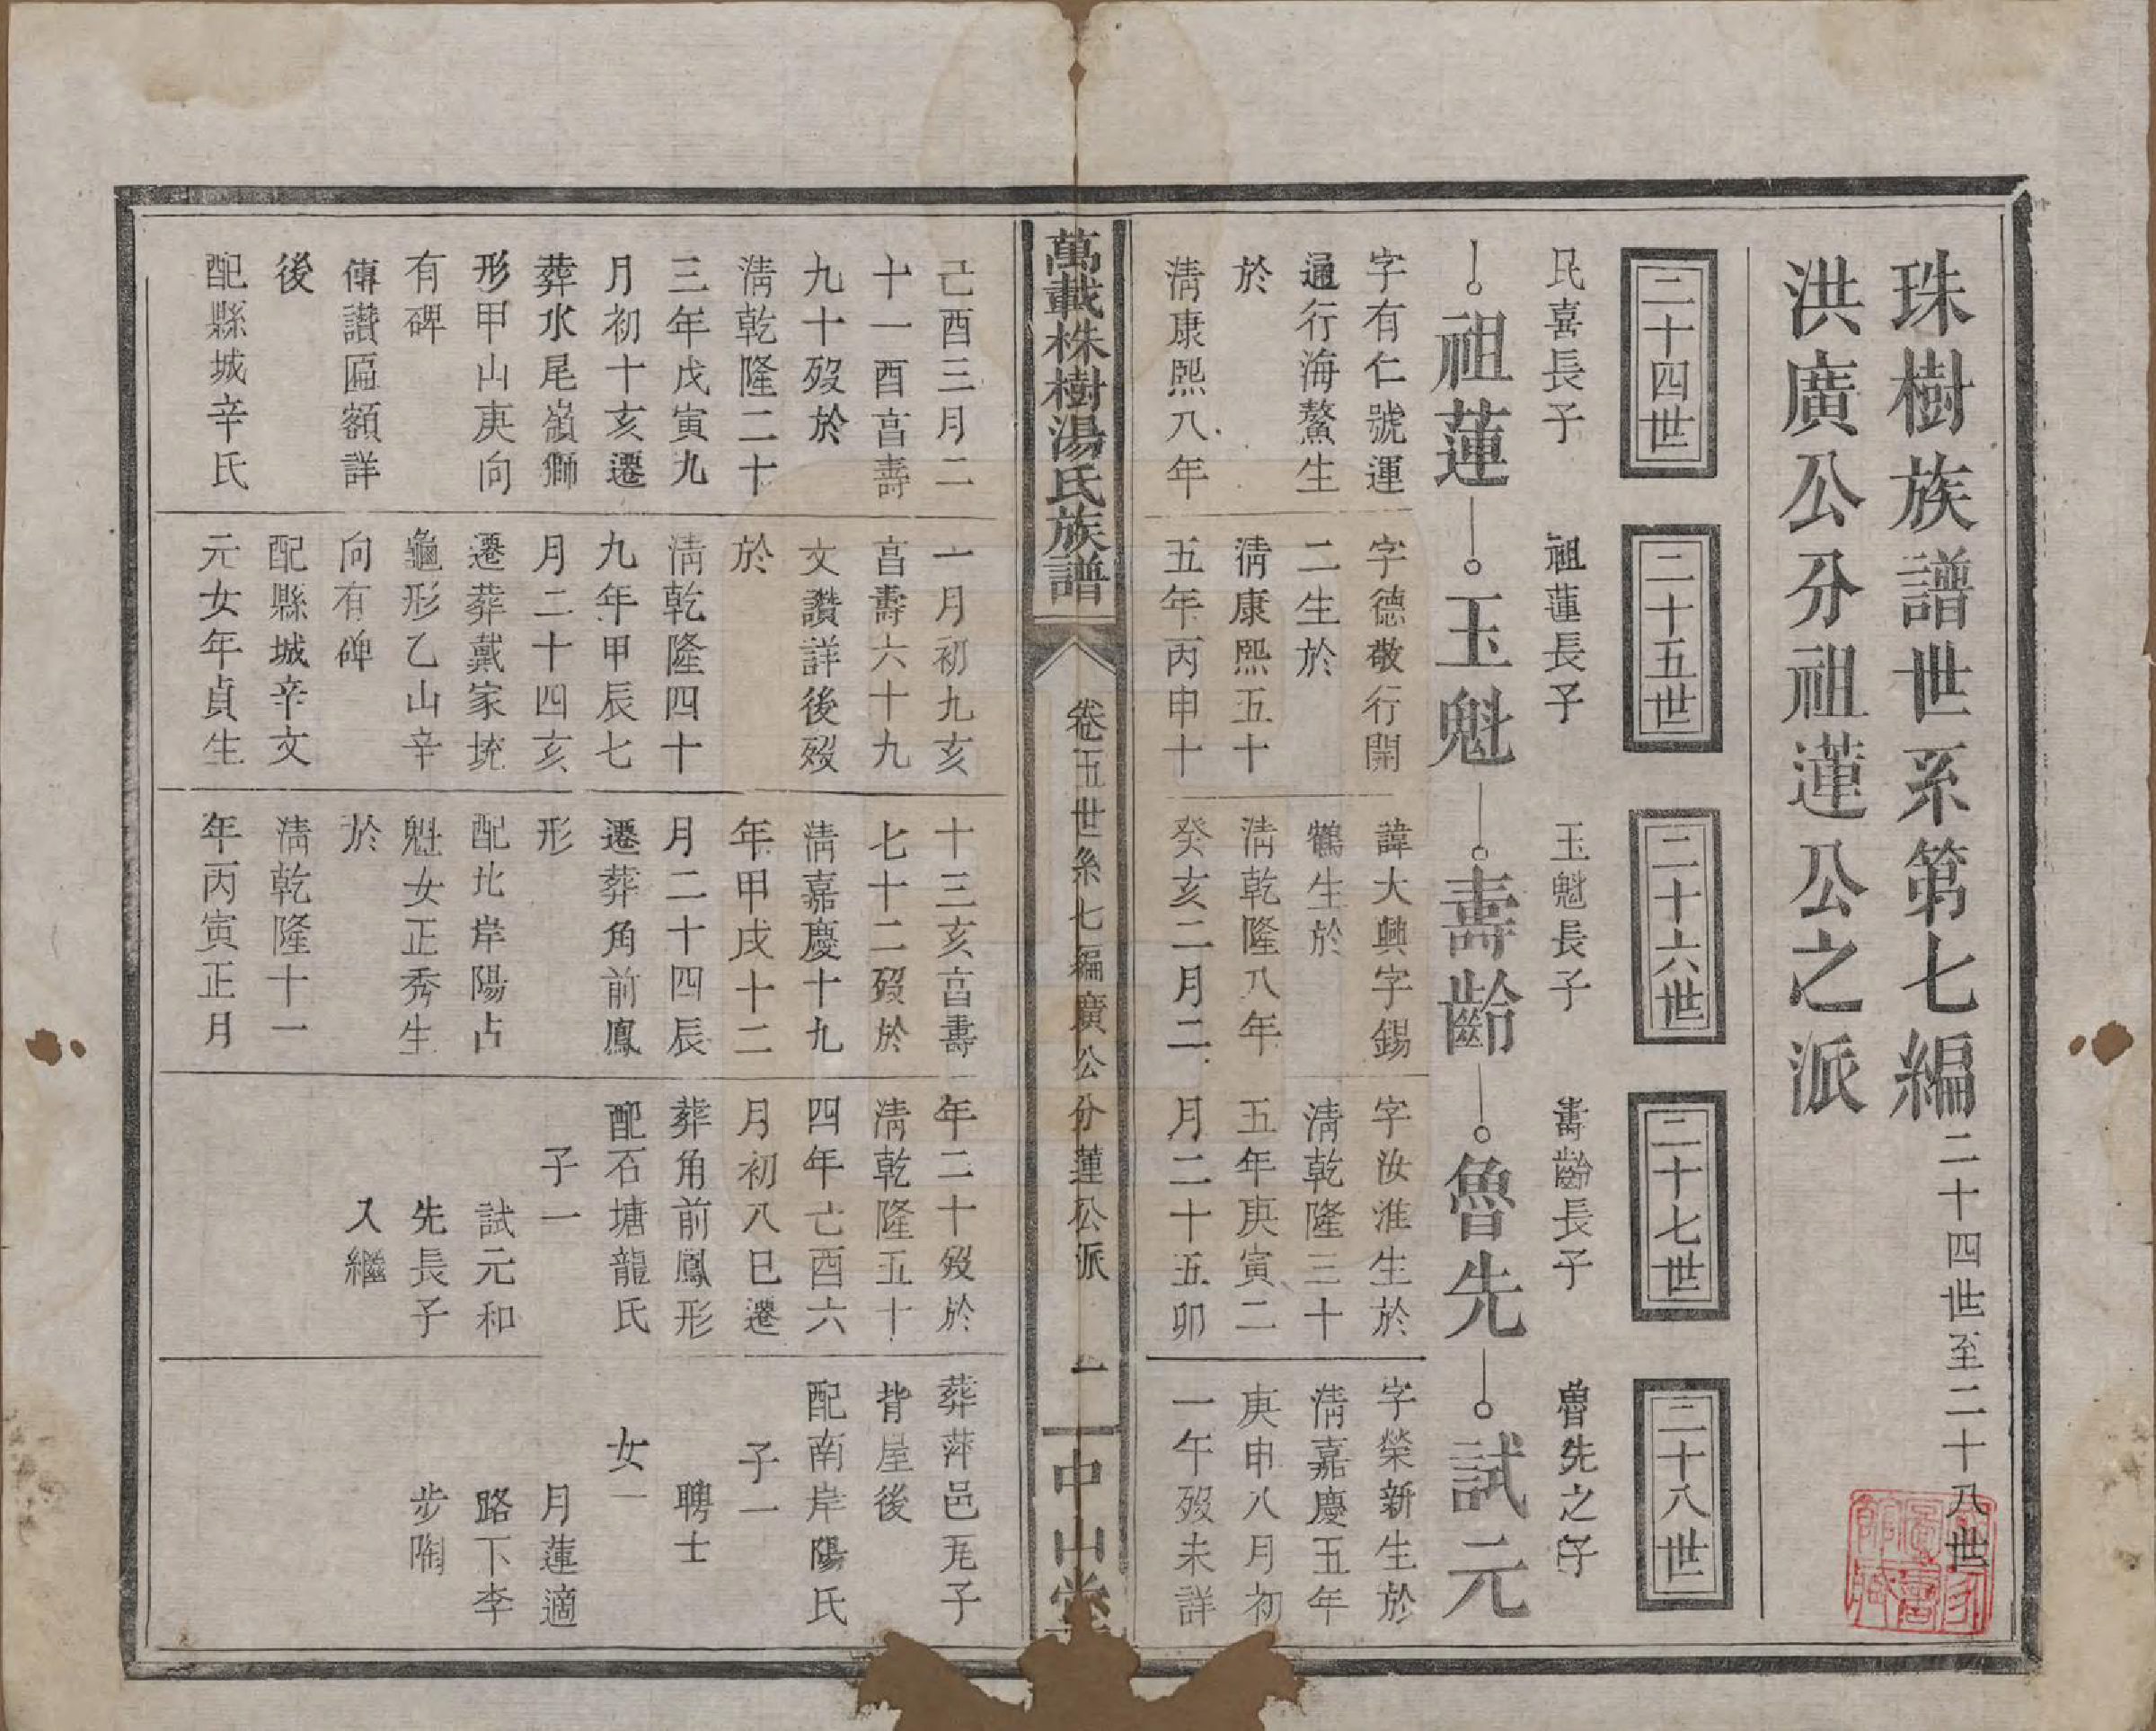 珠樹族譜世系第七編二十四世至二十八世
洪廣公分祖蓮公之派
二十四世
民喜長子
祖蓮
字有仁號運
通行海鰲生
於
清康熙八年
己酉三月二
十一酉亯壽
九十歿於
清乾隆二十
三年戊寅九
月初十亥遷
葬水尾嶺獅
形甲山庚向
有碑
傳讚匾額詳
後
配縣城辛氏
二十五世
祖蓮長子
玉魁
字德敬行開
二生於
清康熙五十
五年丙申十
一月初九亥
亯壽六十九
文讚詳後歿
於
清乾隆四十
九年甲辰七
月二十四亥
遷葬戴家坑
龜形乙山辛
向有碑
配縣城辛文
元女年貞生
二十六世
玉魁長子
壽齡
諱大興字錫
鶴生於
清乾隆八年
癸亥二月二
十三亥亯壽
七十二歿於
清嘉慶十九
年甲戌十二
月二十四辰
遷葬角前鳳
形
配北岸陽占
魁女正秀生
於
清乾隆十一
年丙寅正月
二十七世
壽齡長子
魯先
字汝淮生於
清乾隆三十
五年庚寅二
月二十五卯
年二十歿於
清乾隆五十
四年己酉六
月初八巳遷
葬角前鳳形
配石塘龍氏
子一
試元和
先長子
入繼
二十八世
魯先之子
試元
字榮新生於
清嘉慶五年
庚申八月初
一午歿未詳
葬萍邑厐子
背屋後
配南岸陽氏
子一
聘士
女一
月蓮適
路下李
步陶
萬載株樹湯氏族譜
卷五世系七編廣公分蓮公派
一
中山堂